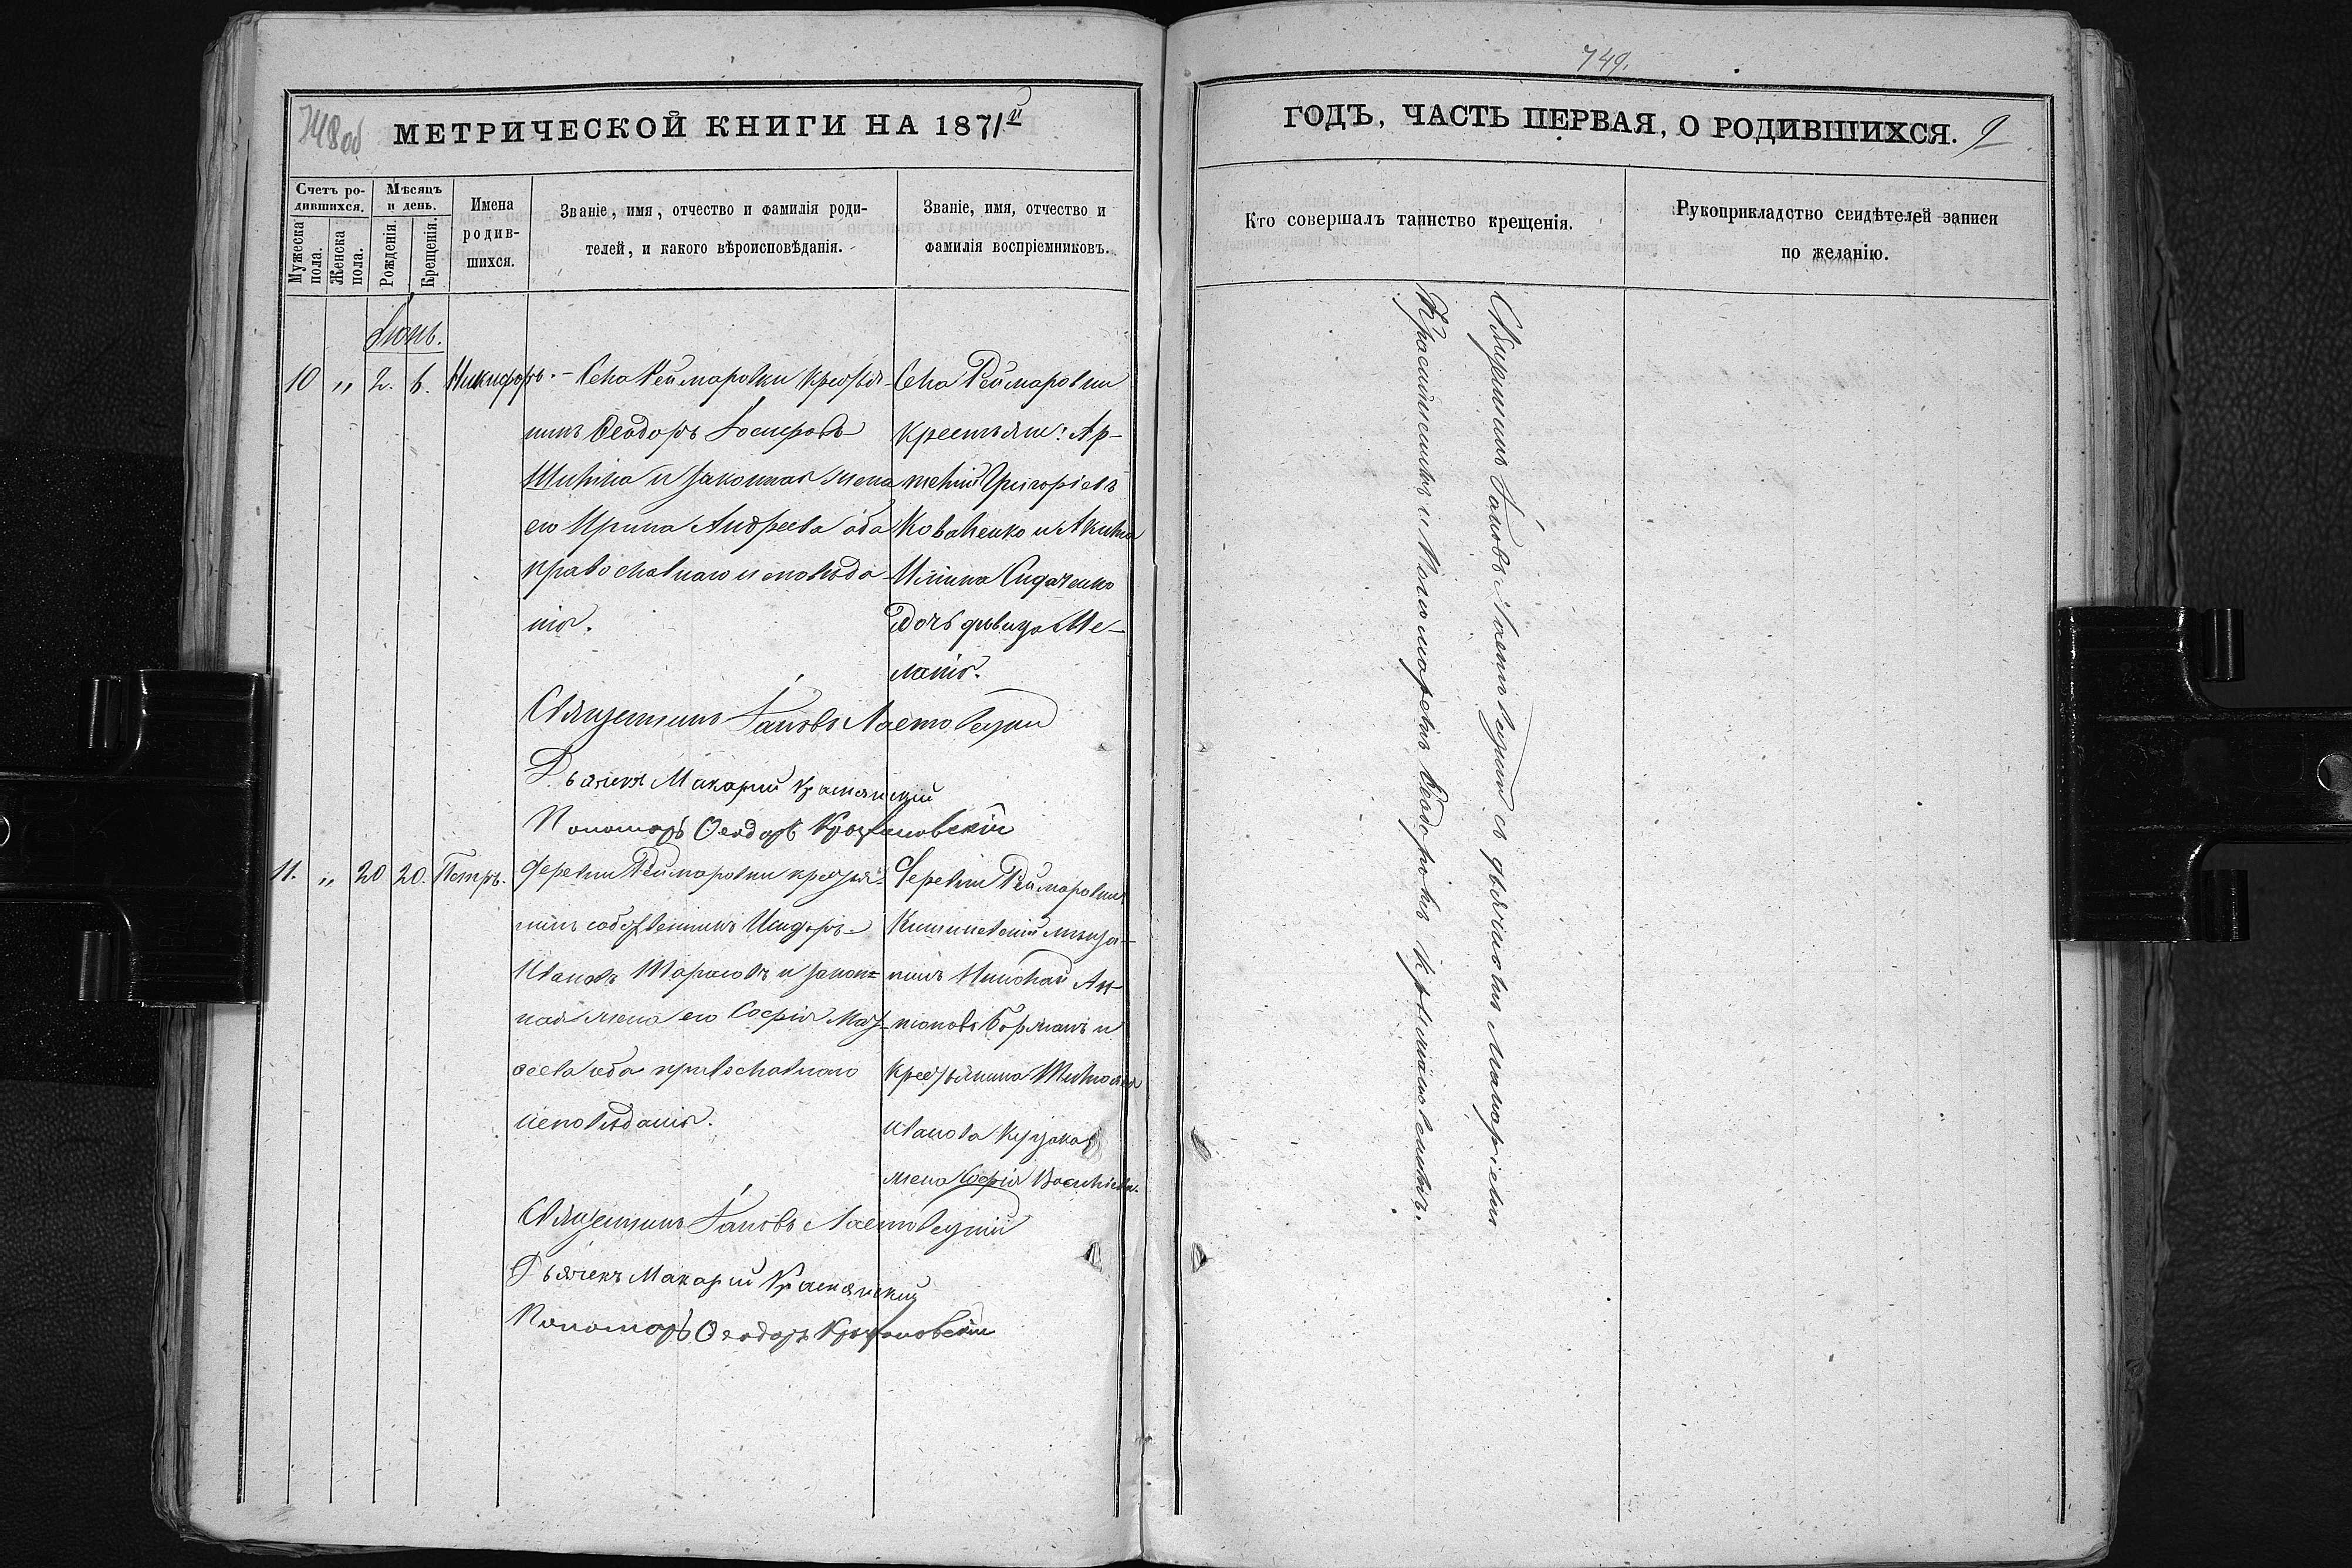 748 об
МЕТРИЧЕСКОЙ КНИГИ НА 1871й
Счетъ ро-
дившихся.
Мѣсяцъ
и день.
Мужеска
пола.
Женска
пола.
Рожденія.
Крещенія.
Имена
родив-
шихся.
Званіе, имя, отчество и фамилія роди-
телей, и какого вѣроисповѣданія.
Званіе, имя, отчество и
фамилія воспріемниковъ.
Іюнь.
10 " 2. 6. Никифоръ.
Села Реймаровки крестья-
нинъ Ѳеодоръ Іосифовъ
и законная жена
его Ирина Андреева оба
православнаго исповѣда-
нія.
Села Реймаровки
крестьян: Ар-
темій Григоріевъ
Коваленко и Акима
Сидаченко
дочь дѣвица Ме-
ланія.
Священникъ Іаковъ Ластовецкій
Дьячекъ Макарий
Пономарь Ѳеодоръ
11. " 20 20. Петръ.
Деревни Реймаровки крестья-
нинъ собственникъ Исидоръ
Ивановъ Тарасовъ и закон=
ная жена его Софія Мат-
ѳеева оба православнаго
исповѣданія.
Деревни Реймаровки
Кишиневскій мѣща-
нинъ Николай Ан-
тоновъ и
крестьянина Тимоѳея
Иванова
жена Софія Василіева.
Священникъ Іаковъ Ластовецкій
Дьячекъ Макарий
Пономарь Ѳеодоръ
749.
ГОДЪ, ЧАСТЬ ПЕРВАЯ, О РОДИВШИХСЯ. 9
Кто совершалъ таинство крещенія.
Рукоприкладство свидѣтелей записи
по желанію.
Священникъ Іаковъ Ластовецкій съ дьячкомъ Макаріемъ
и Пономаремъ Ѳеодоромъ